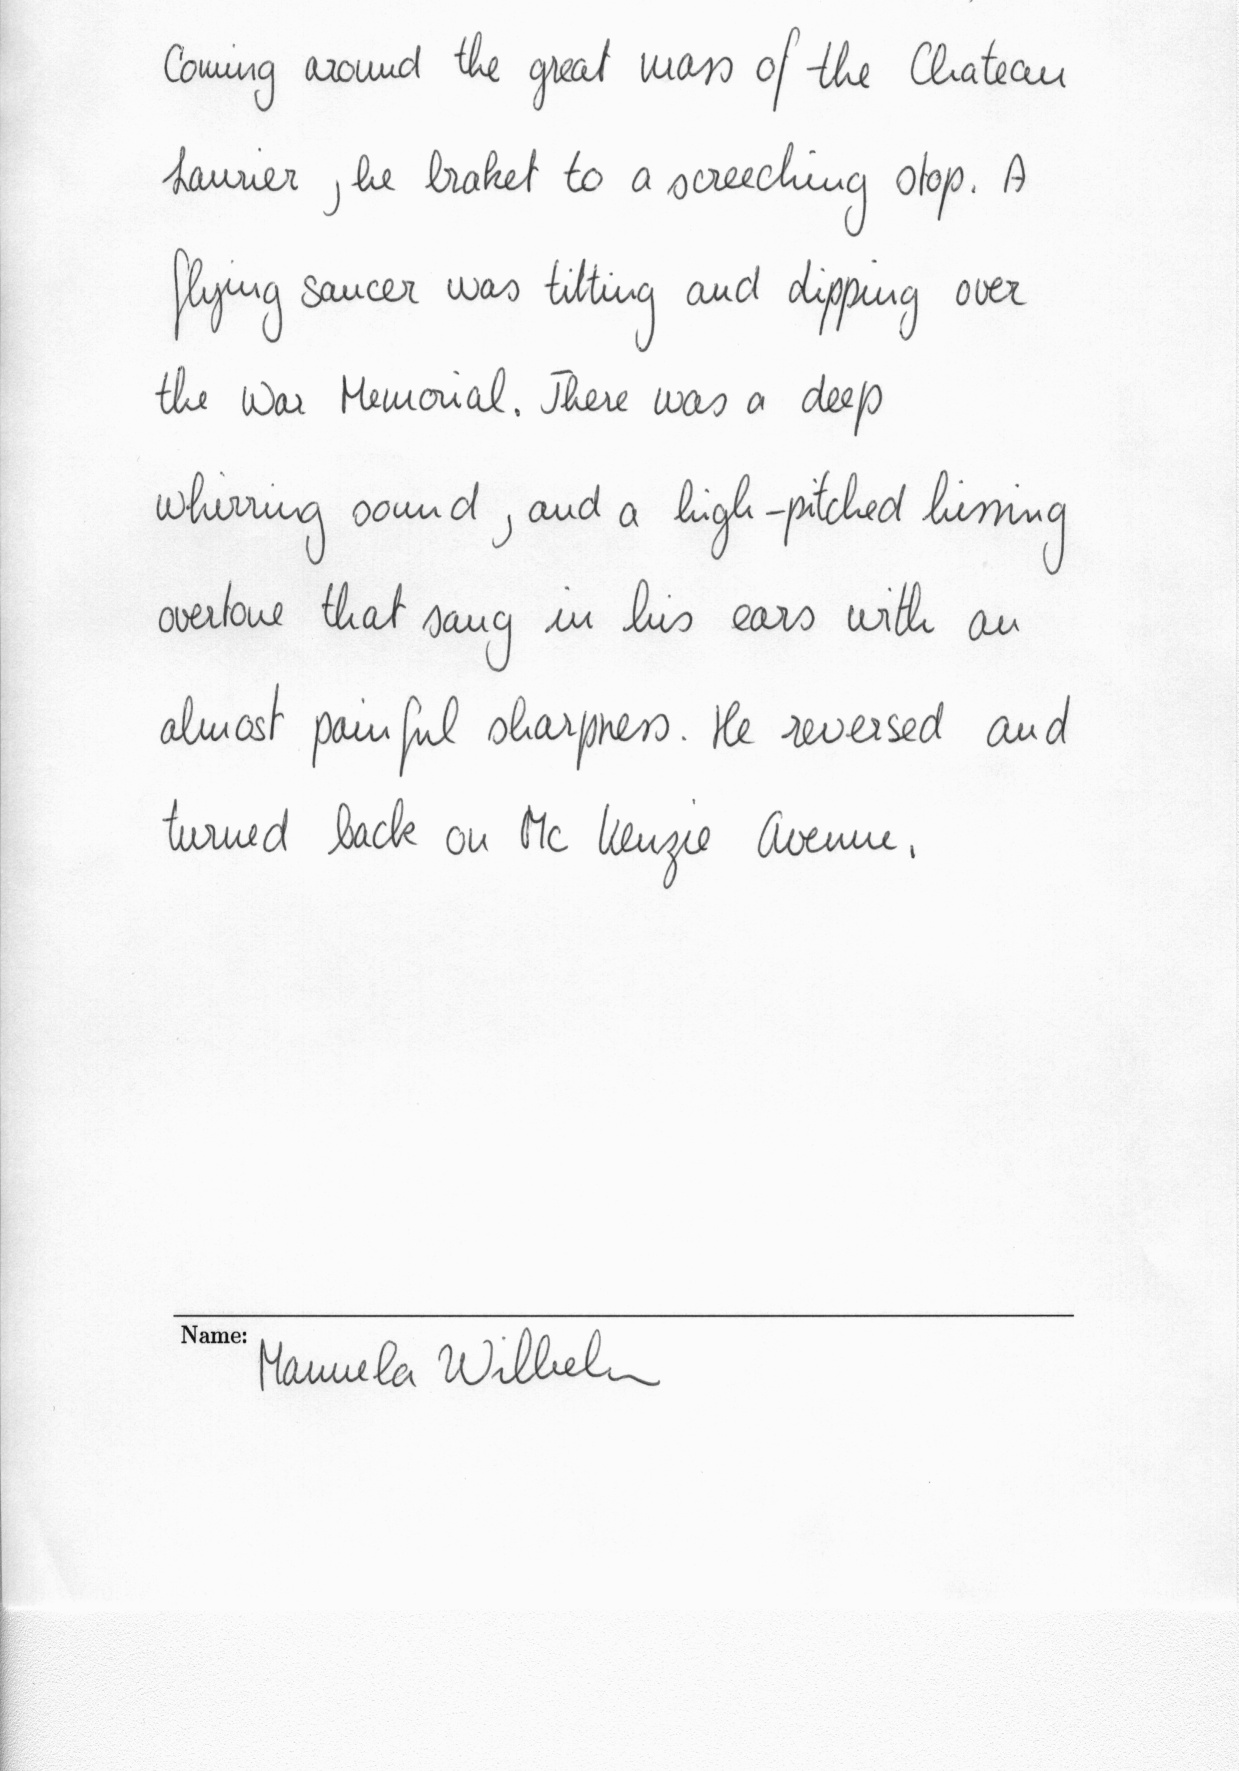 Coming around the great mass of the Chateau
Laurier, he braket to a screeching stop. A
flying saucer was tilting and dipping over
the War Memorial. There was a deep
whirring sound, and a high-pitched hissing
overtone that sang in his ears with an
almost painful sharpness. He reversed and
turned back on Mc Kenzie Avenue.
Name:
Manuela Wilhelm